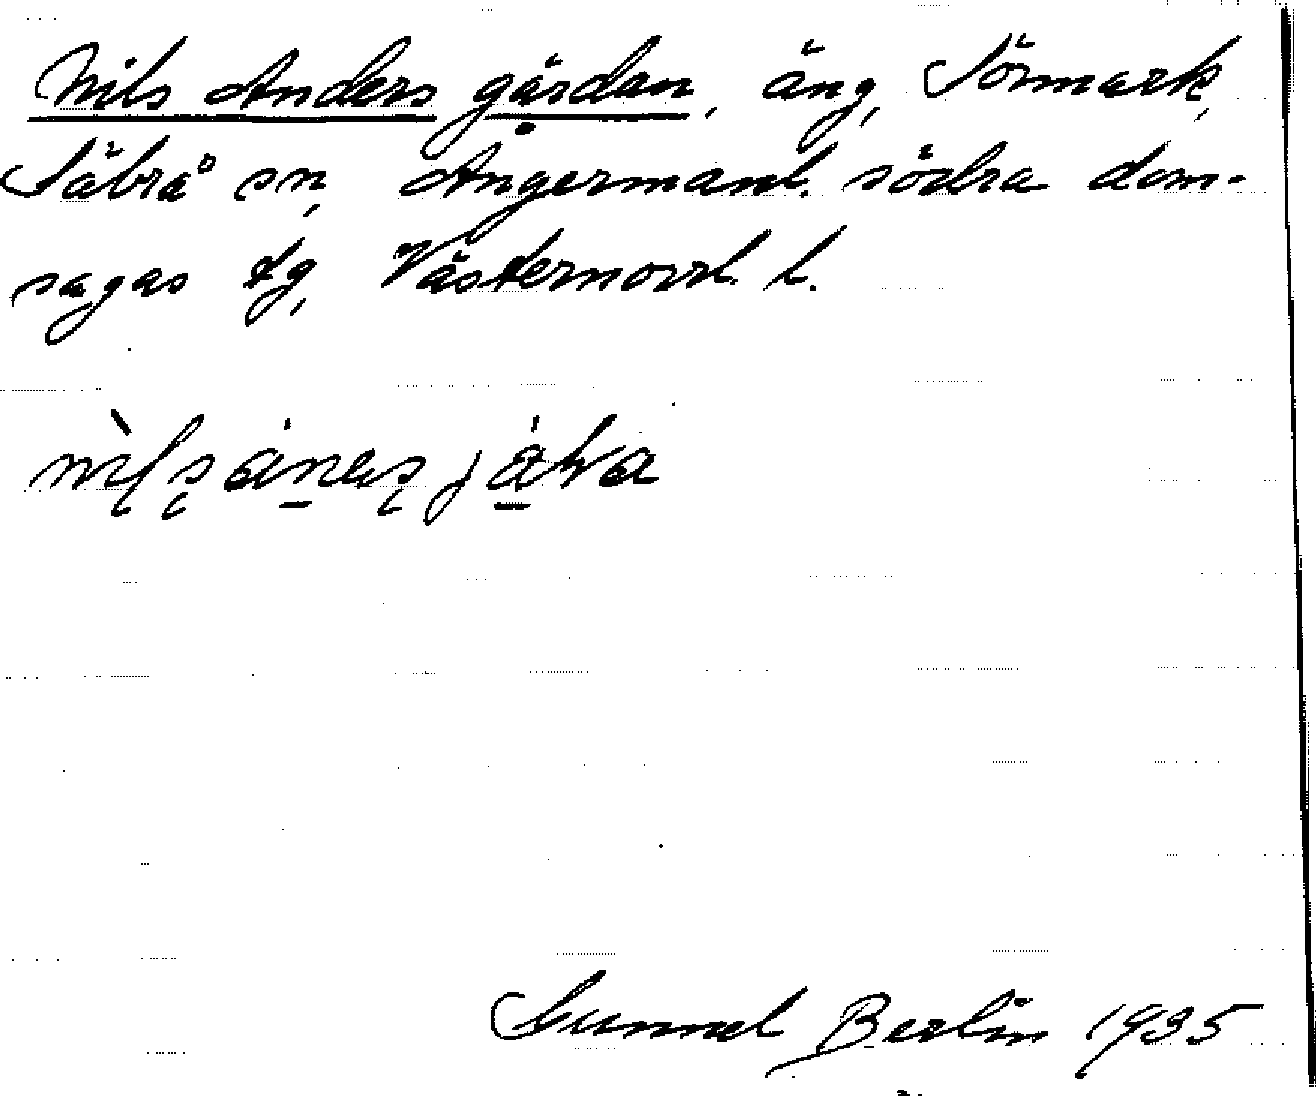 Nils Anders gärdan, äng, Törmark,
Säbrå sn, Ångermanl. södra dom-
sagas tg, Västernorrl. l.
Gunnel Berlin 1935